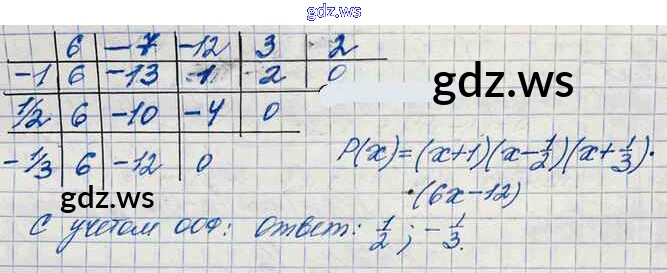 gdz.ws
6 -7 -12 3 2
-1 6 -13 1 2 0
gdz.ws
1/2 6 -10 -4 0
-1/3 6 -12 0
P(x)=(x+1)(x-1/2)(x+1/3)·
·(6x-12)
gdz.ws
С учетом ООФ: Ответ: 1/2; -1/3.